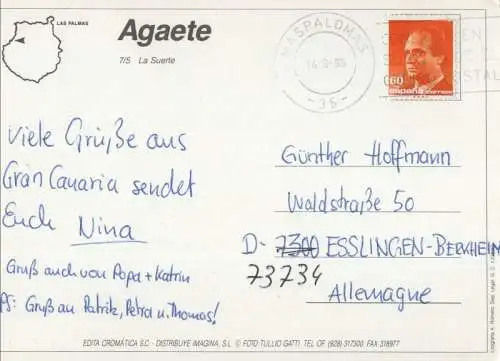 LAS PALMAS
Agaete
7/5 La Suerte
MASPALOMAS
-35-
60
españa
Viele Grüße aus
Gran Canaria sendet
Euch Nina
Gruß auch von Papa + Katrin
PS: Gruß an Patrik, Petra u. Thomas!
Günther Hoffmann
Waldstraße 50
D- 7300 ESSLINGEN-BERKHEIM
73734
Allemagne
EDITA CROMATICA S.C. - DISTRIBUYE IMAGINA, S.L. © FOTO TULLIO GATTI. TEF OF (928) 317500 FAX 318977